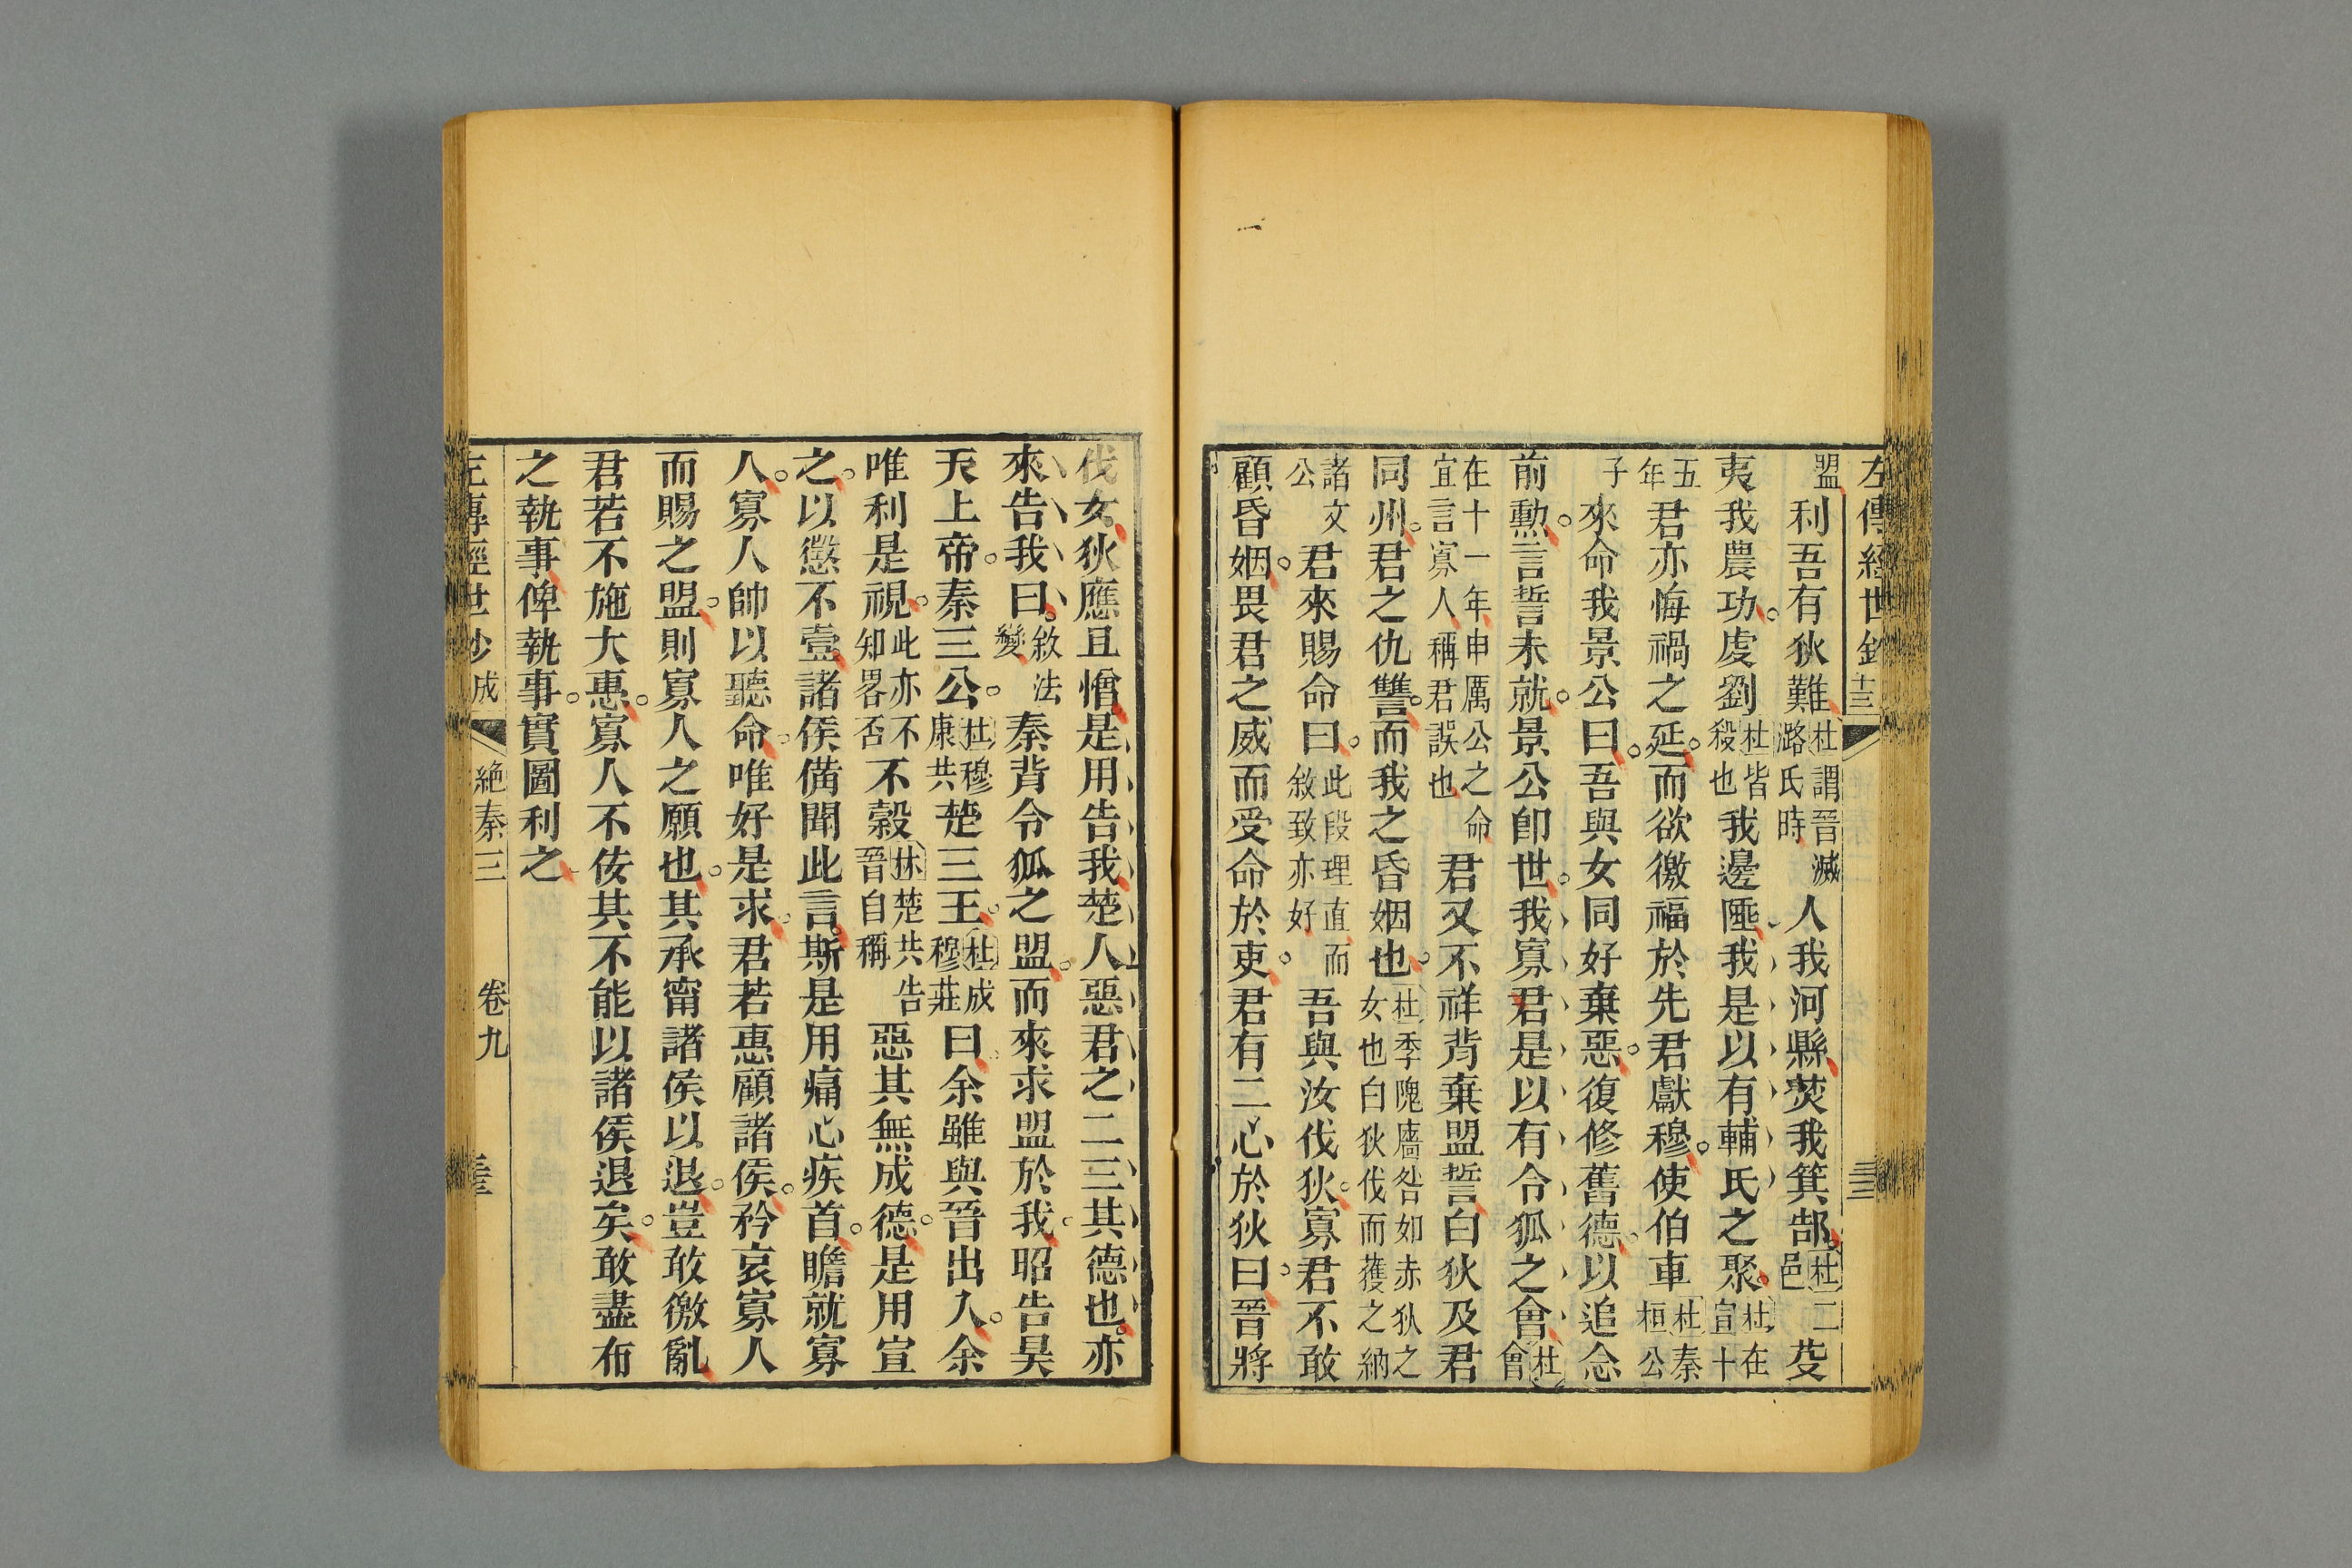 左傳經世鈔 十三
盟利吾有狄難杜謂晉滅潞氏時入我河縣焚我箕郜杜二邑芟
夷我農功虔劉杜皆殺也我邊陲我是以有輔氏之聚杜在宣十
五年君亦悔禍之延而欲徼福於先君獻穆使伯車杜秦桓公
子來命我景公曰吾與女同好棄惡復修舊德以追念
前勳言誓未就景公卽世我寡君是以有令狐之會杜會
在十一年申厲公之命宜言寡人稱君誤也君又不祥背棄盟誓白狄及君
同州君之仇讐而我之昏姻也杜季隗廧咎如赤狄之女也白狄伐而獲之納
諸文公君來賜命曰此段理直而敘致亦好吾與汝伐狄寡君不敢
顧昏姻畏君之威而受命於吏君有二心於狄曰晉將
伐女狄應且憎是用告我楚人惡君之二三其德也亦
來告我曰敘法變秦背令狐之盟而來求盟於我昭告昊
天上帝秦三公杜穆康共楚三王杜成穆莊曰余雖與晉出入余
唯利是視此亦不知畧否不穀林楚共告晉自稱惡其無成德是用宣
之以懲不壹諸侯備聞此言斯是用痛心疾首瞻就寡
人寡人帥以聽命唯好是求君若惠顧諸侯矜哀寡人
而賜之盟則寡人之願也其承甯諸侯以退豈敢徼亂
君若不施大惠寡人不佞其不能以諸侯退矣敢盡布
之執事俾執事實圖利之
左傳經世鈔 成 絶秦三 卷九